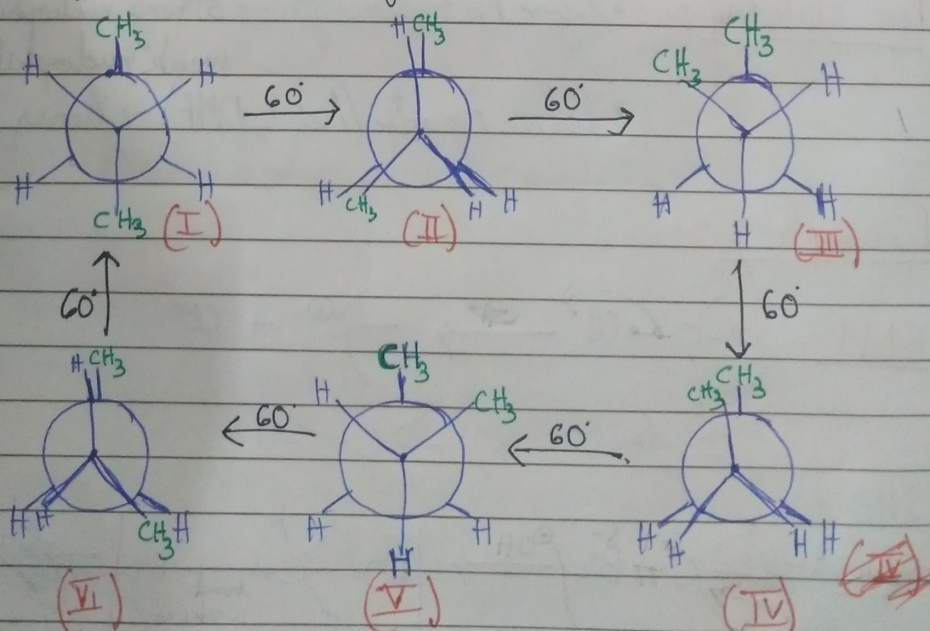 CH3
H H
H H
CH3 (I)
60°
H CH3
H CH3 H H
(II)
60°
CH3
CH3 H
H H
H (III)
60°
CH3
CH3
H H H H
(IV)
60°
CH3
H CH3
H H
H
(V)
60°
H CH3
H H CH3 H
(VI)
60°